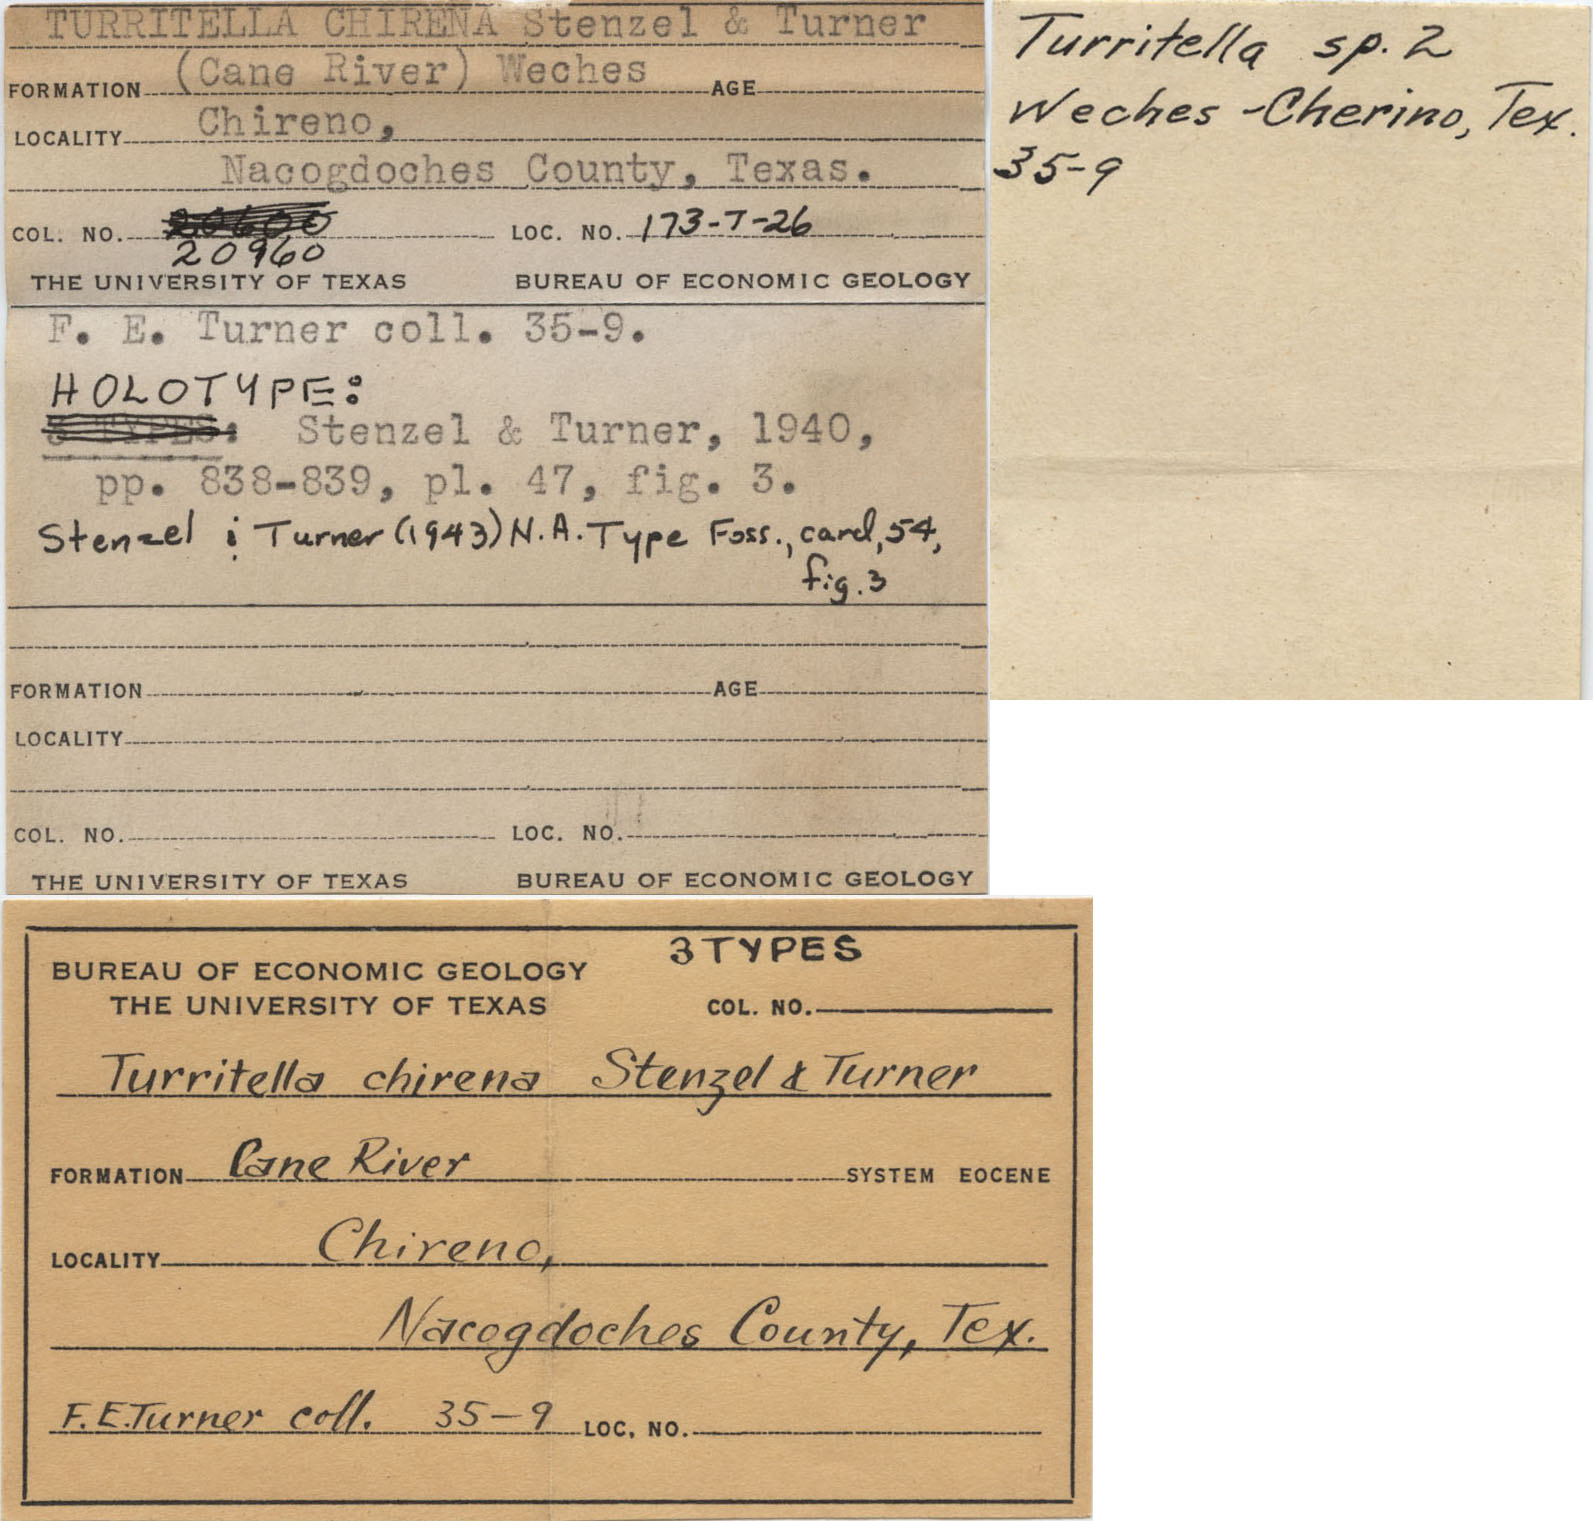 TURRITELLA CHIRENA Stenzel & Turner
FORMATION (Cane River) Weches AGE
LOCALITY Chireno,
Nacogdoches County, Texas.
COL. NO. 20600 LOC. NO. 173-T-26
20960
THE UNIVERSITY OF TEXAS BUREAU OF ECONOMIC GEOLOGY
F. E. Turner coll. 35-9.
HOLOTYPE:
3 TYPES: Stenzel & Turner, 1940,
pp. 838-839, pl. 47, fig. 3.
Stenzel & Turner (1943) N.A. Type Foss., card, 54,
fig. 3
FORMATION AGE
LOCALITY
COL. NO. LOC. NO.
THE UNIVERSITY OF TEXAS BUREAU OF ECONOMIC GEOLOGY
Turritella sp. 2
Weches - Cherino, Tex.
35-9
3 TYPES
BUREAU OF ECONOMIC GEOLOGY
THE UNIVERSITY OF TEXAS COL. NO.
Turritella chirena Stenzel & Turner
FORMATION Cane River SYSTEM EOCENE
LOCALITY Chireno,
Nacogdoches County, Tex.
F. E. Turner coll. 35-9 LOC. NO.